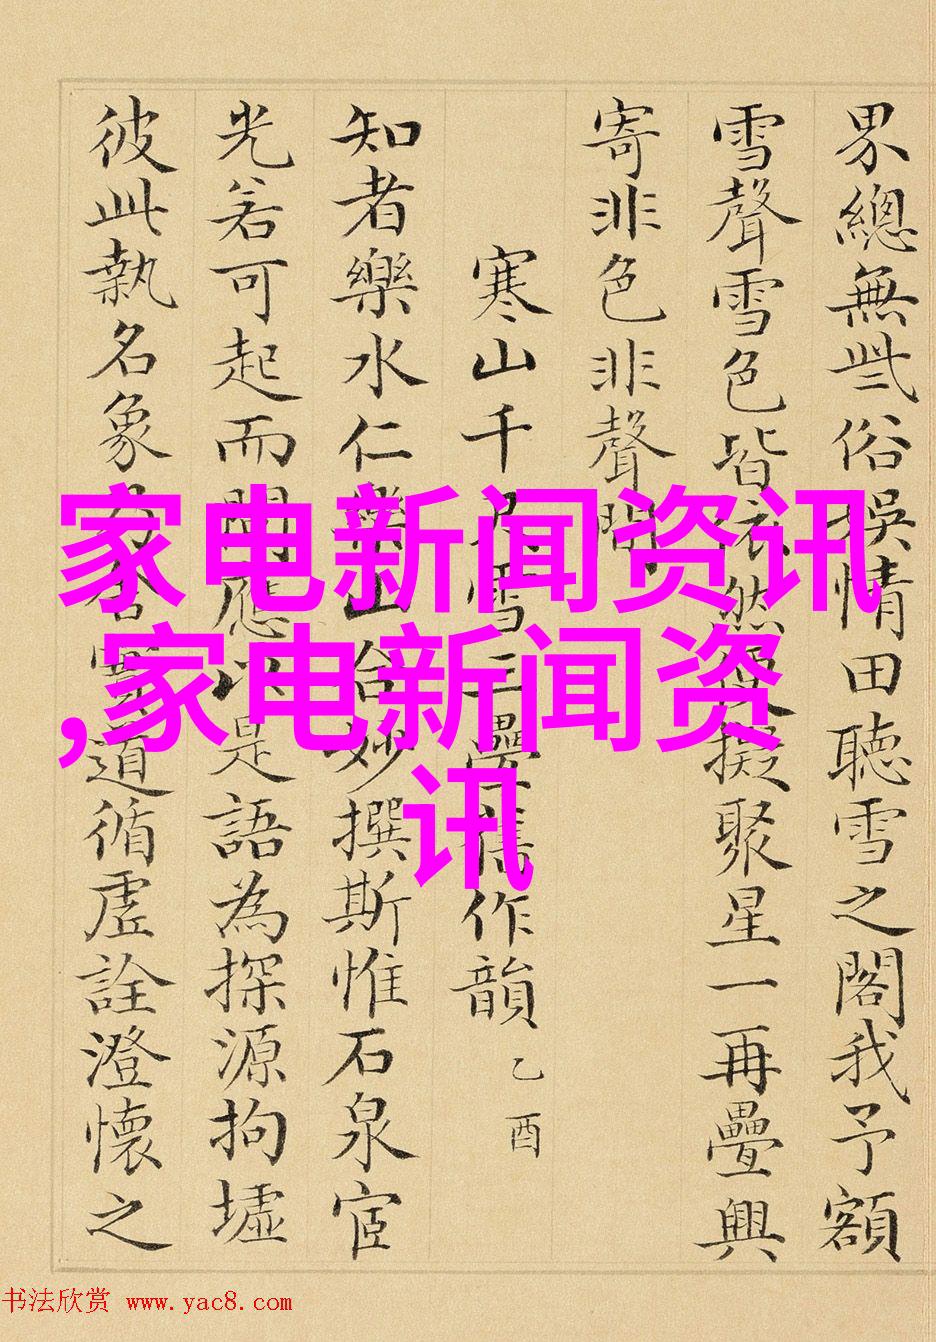 界總無些俗娛情田聽雪之閣我予額
雪聲雪色皆依然促擬聚星一再疊興
寄非色非聲間
寒山千尺雪三疊舊作韻 乙酉
知者樂水仁樂山台妙撰斯惟石泉宦
光若可起而問應以是語為探源拘墟
彼此執名象道循虛詮澄懷之
家电新闻资讯
,家电新闻资
讯
书法欣赏 www.yac8.com